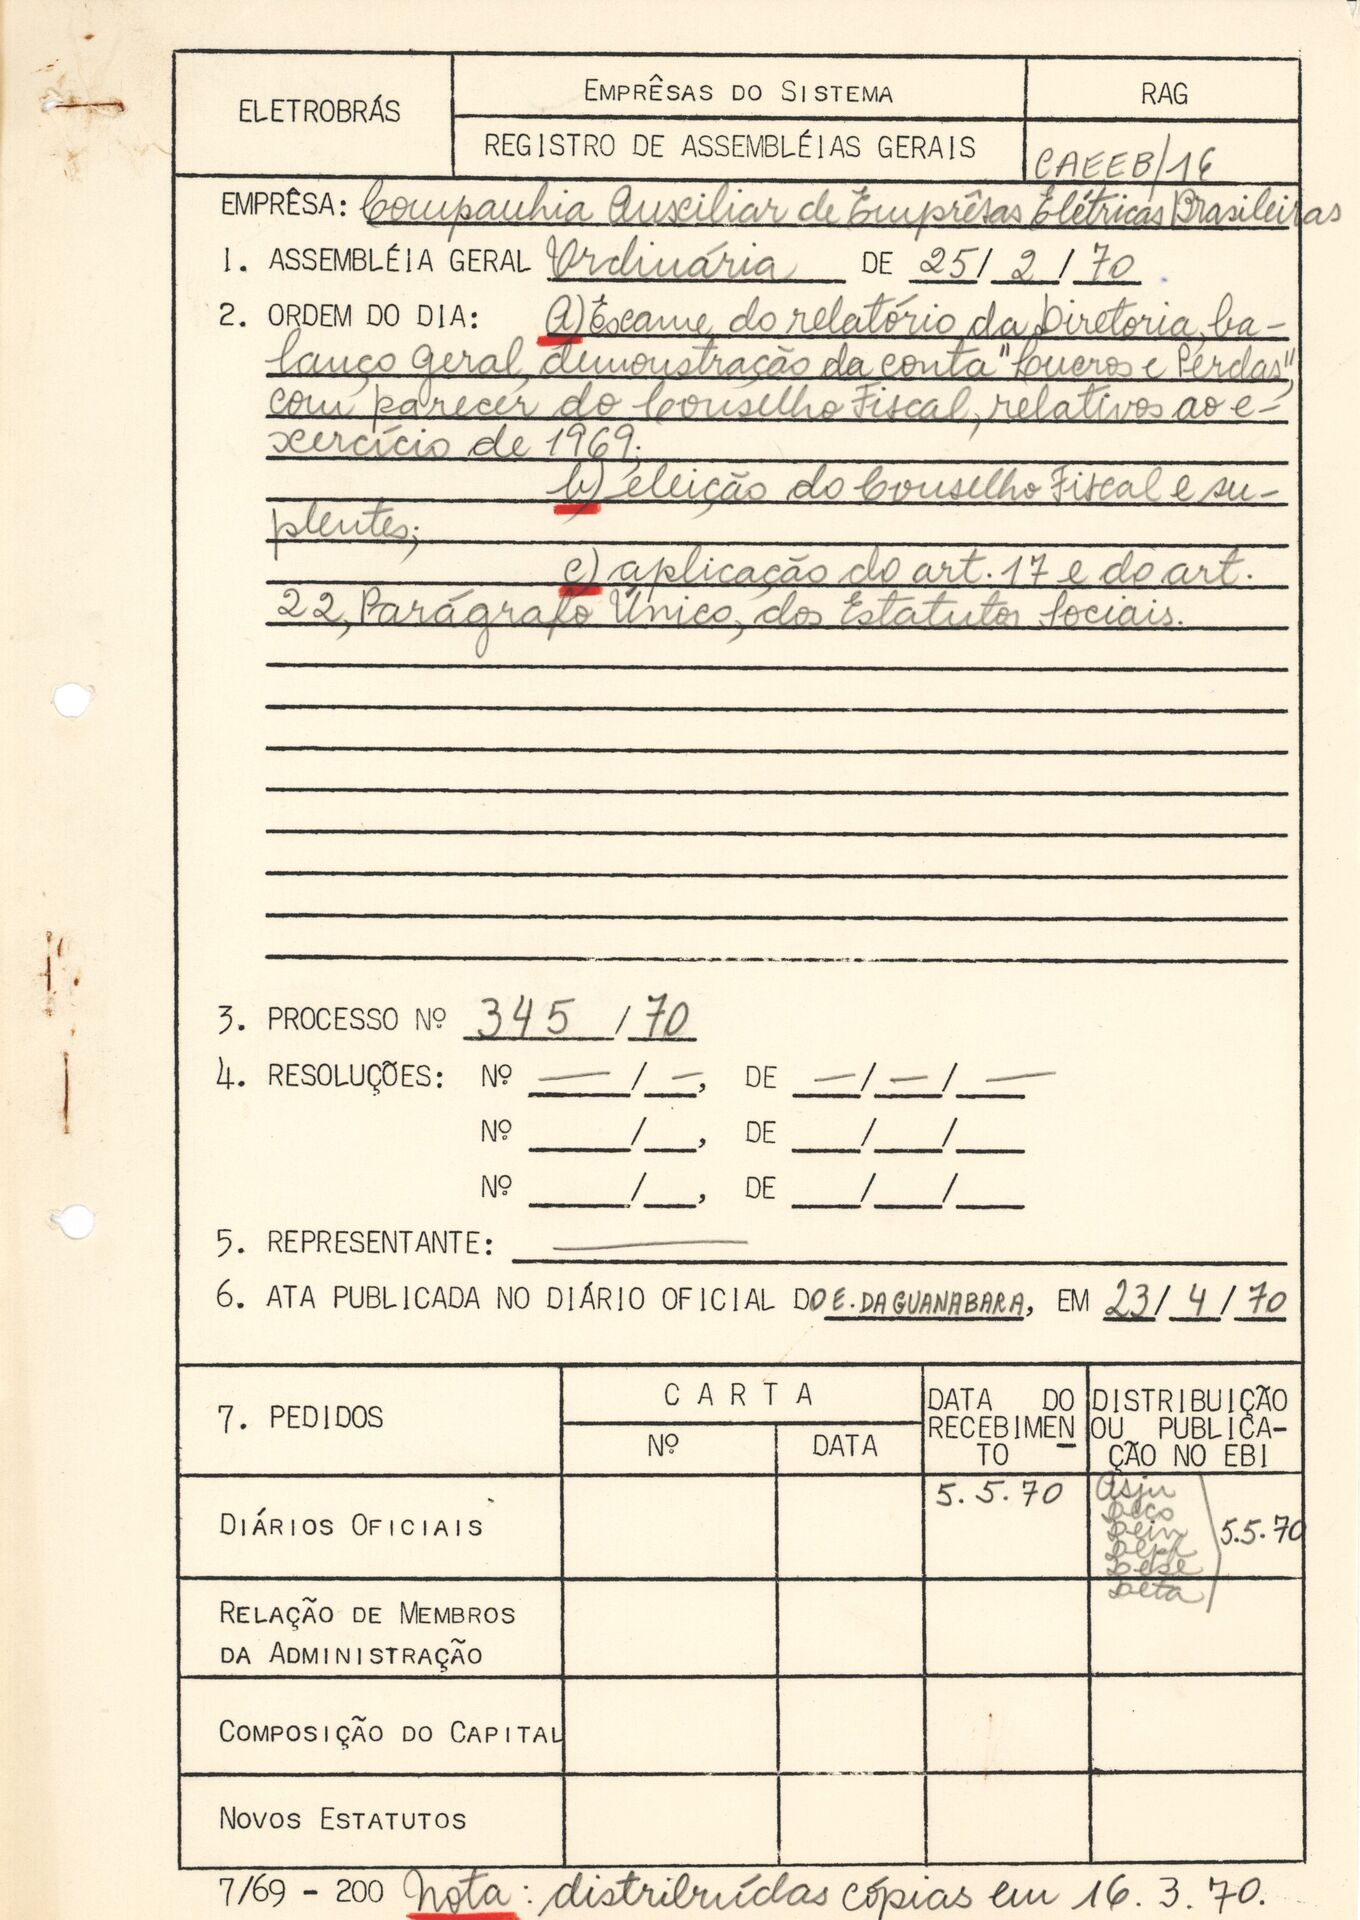 ELETROBRÁS
EMPRÊSAS DO SISTEMA
RAG
REGISTRO DE ASSEMBLÉIAS GERAIS
CAEEB/16
EMPRÊSA: Companhia Auxiliar de Emprêsas Elétricas Brasileiras
1. ASSEMBLÉIA GERAL Ordinária DE 25/2/70
2. ORDEM DO DIA: a) Exame do relatório da Diretoria, ba-
lanço geral, demonstração da conta "Lucros e Perdas",
com parecer do Conselho Fiscal, relativos ao e-
xercício de 1969;
b) eleição do Conselho Fiscal e su-
plentes;
c) aplicação do art. 17 e do art.
22, Parágrafo Único, dos Estatutos Sociais.
3. PROCESSO Nº 345/70
4. RESOLUÇÕES: Nº — / —, DE — / — / —
Nº ____/__, DE ___/___/___
Nº ____/__, DE ___/___/___
5. REPRESENTANTE: —
6. ATA PUBLICADA NO DIÁRIO OFICIAL DO E. DA GUANABARA, EM 23/4/70
7. PEDIDOS
CARTA
Nº
DATA
DATA DO
RECEBIMEN
TO
DISTRIBUIÇÃO
OU PUBLICA-
ÇÃO NO EBI
DIÁRIOS OFICIAIS
5.5.70
Asju
Deco
Dein
Depl
Dese
Deta
5.5.70
RELAÇÃO DE MEMBROS
DA ADMINISTRAÇÃO
COMPOSIÇÃO DO CAPITAL
NOVOS ESTATUTOS
7/69 - 200 Nota: distribuídas cópias em 16.3.70.